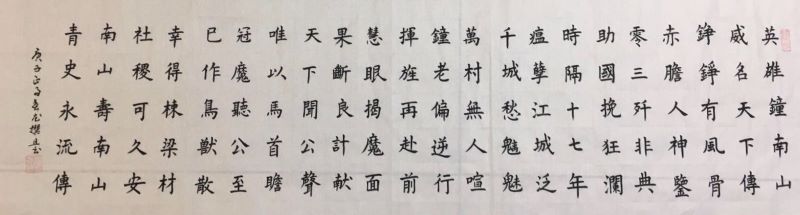 英雄鐘南山
威名天下傳
錚錚有風骨
赤膽人神鑒
零三殲非典
助國挽狂瀾
時隔十七年
瘟孽江城泛
千城愁魑魅
萬村無人喧
鐘老偏逆行
揮旌再赴前
慧眼揭魔面
果斷良計献
天下聞公聲
唯以馬首瞻
冠魔聽公至
已作鳥獸散
幸得棟梁材
社稷可久安
南山壽南山
青史永流傳
庚子正月